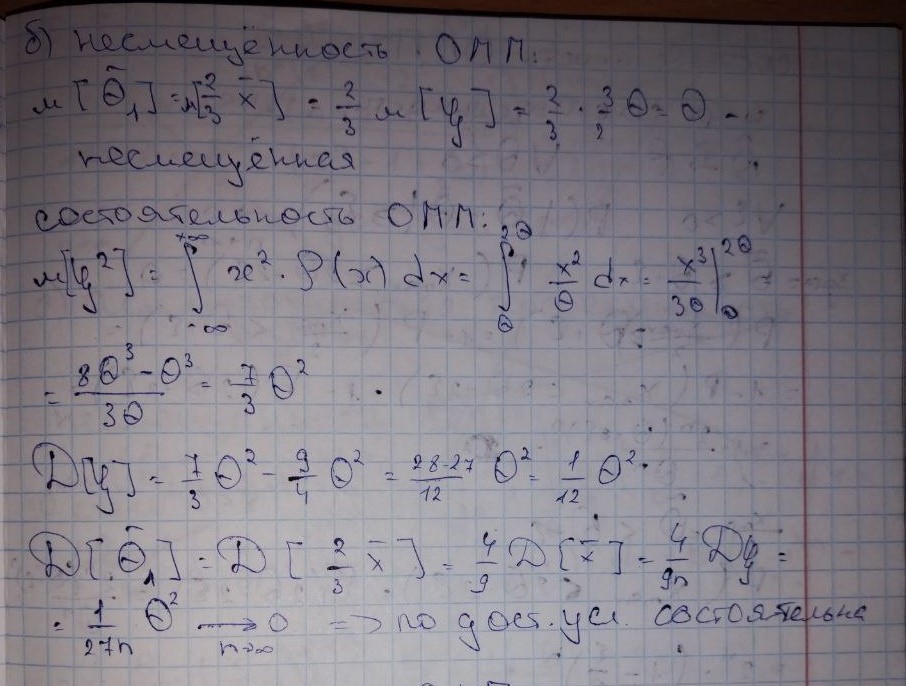 б) несмещённость ОММ:
м[θ̃₁] = м[2/3 x̄] = 2/3 м[ξ] = 2/3 · 3/2 θ = θ
несмещённая
состоятельность ОММ:
м[ξ²] = ∫_{-∞}^{+∞} x² · ρ(x) dx = ∫_θ^{2θ} x²/θ dx = x³/3θ |_θ^{2θ}
= (8θ³ - θ³)/3θ = 7/3 θ²
D[ξ] = 7/3 θ² - 9/4 θ² = (28-27)/12 θ² = 1/12 θ²
D[θ̃₁] = D[2/3 x̄] = 4/9 D[x̄] = 4/9n Dξ =
= 1/27n θ² ⟶_{n→∞} 0 => по дост. усл. состоятельна